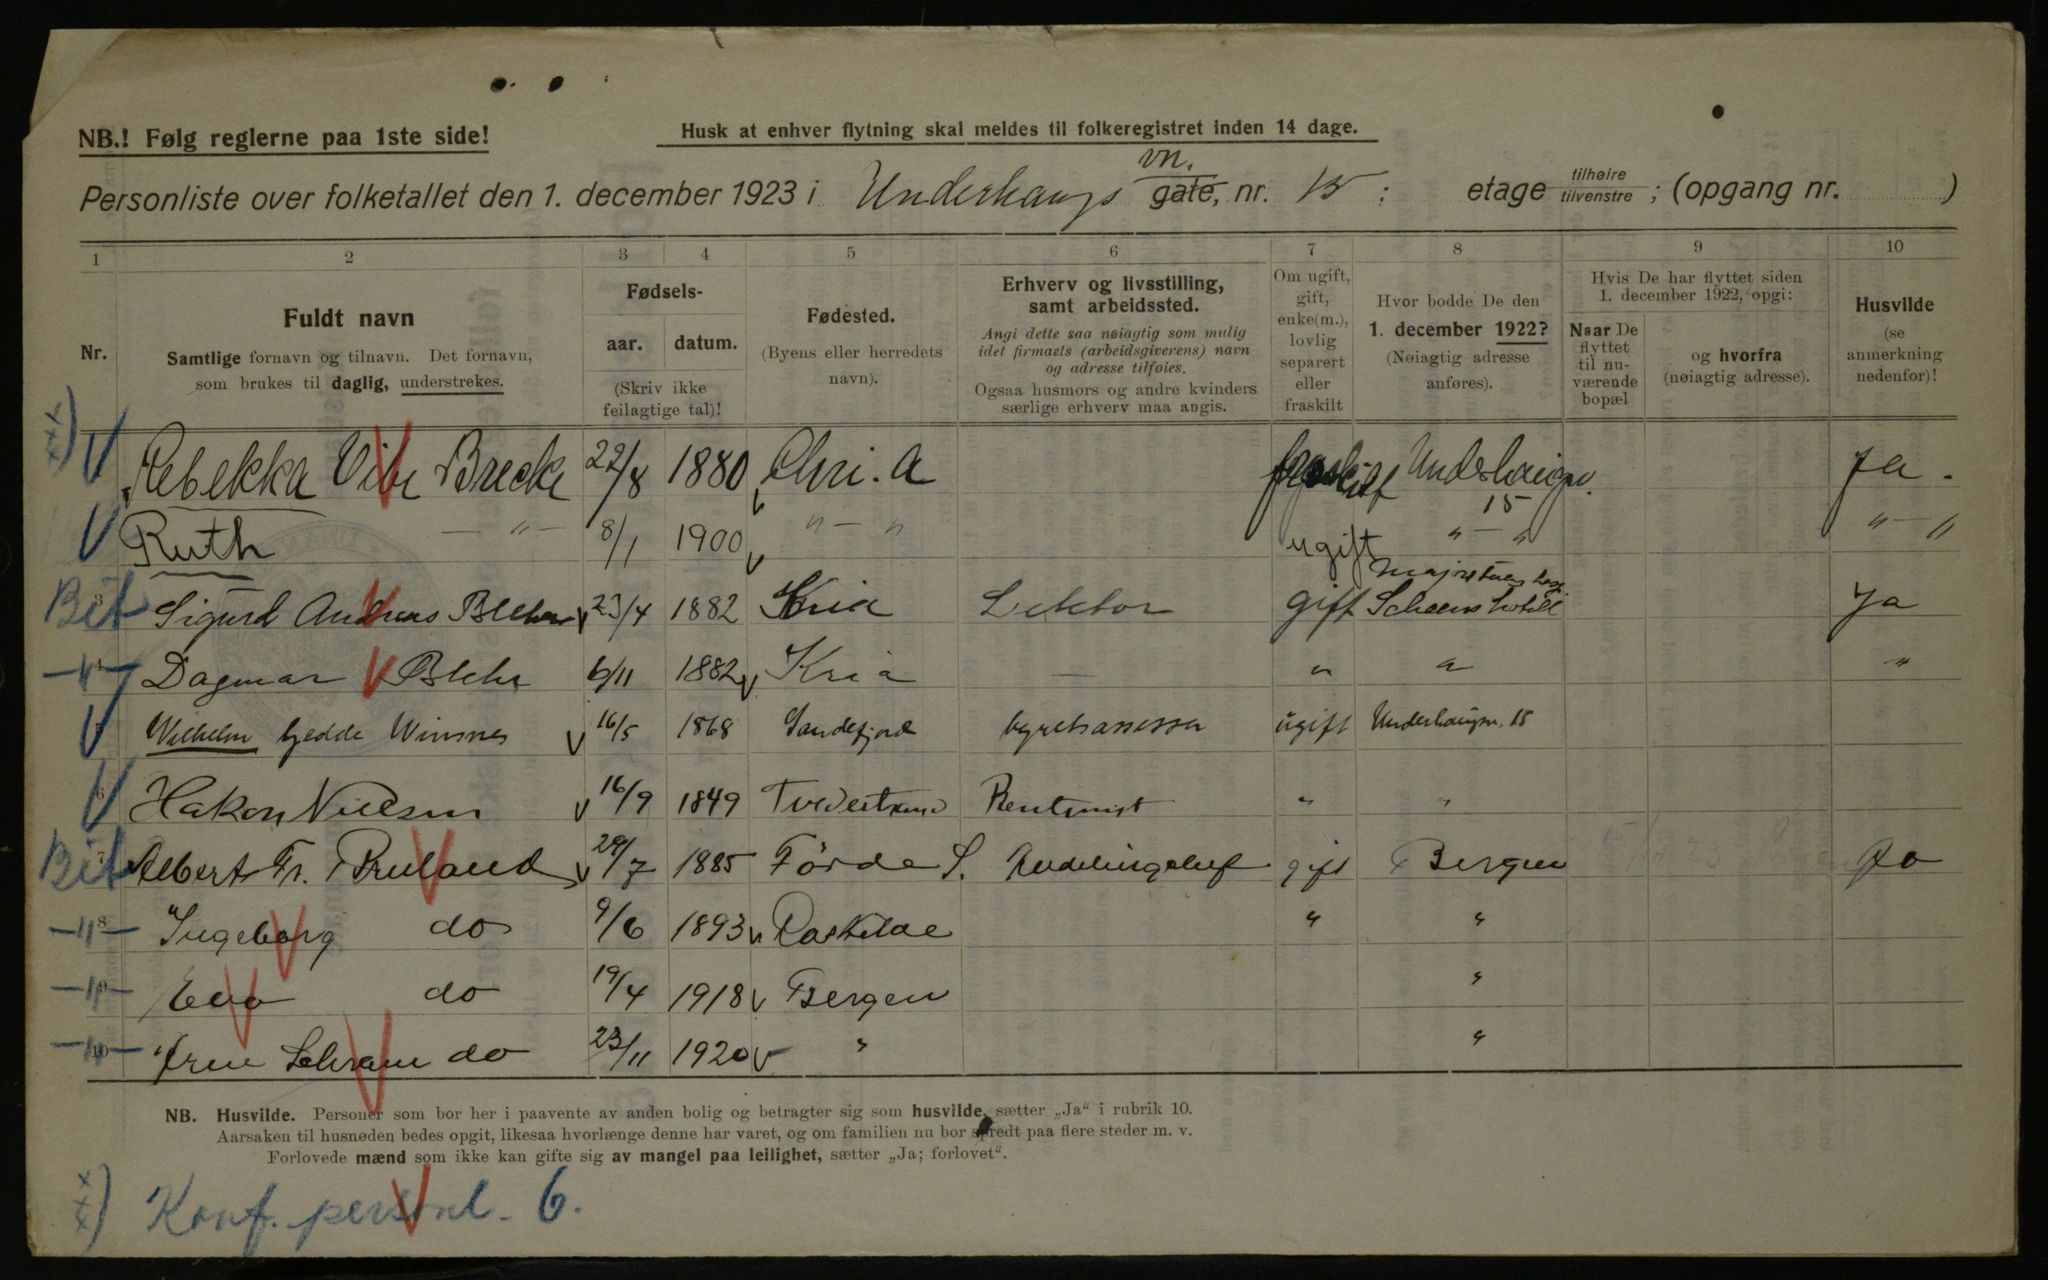 NB.! Følg reglerne paa 1ste side!
Husk at enhver flytning skal meldes til folkeregistret inden 14 dage.
vn.
Personliste over folketallet den 1. december 1923 i Underhaugs gate, nr. 15 ; etage tilhøire tilvenstre ; (opgang nr. )
1 2 3 4 5 6 7 8 9 10
Nr.
Fuldt navn
Samtlige fornavn og tilnavn. Det fornavn,
som brukes til daglig, understrekes.
Fødsels-
aar. datum.
(Skriv ikke
feilagtige tal)!
Fødested.
(Byens eller herredets
navn).
Erhverv og livsstilling,
samt arbeidssted.
Angi dette saa nøiagtig som mulig
idet firmaets (arbeidsgiverens) navn
og adresse tilføies.
Ogsaa husmors og andre kvinders
særlige erhverv maa angis.
Om ugift,
gift,
enke(m.),
lovlig
separert
eller
fraskilt
Hvor bodde De den
1. december 1922?
(Nøiagtig adresse
anføres).
Hvis De har flyttet siden
1. december 1922, opgi:
Naar De
flyttet
til nu-
værende
bopæl
og hvorfra
(nøiagtig adresse).
Husvilde
(se
anmerkning
nedenfor)!
xxx) V Rebekka Vibe Brecke 22/8 1880 Chri.a fraskilt Underhaugsv. 15 Ja.
V Ruth — " — 8/1 1900 " — " ugift " — " " — "
Majorstuens
Bit 3 Sigurd Andreas Blehr 23/4 1882 Kria Lektor gift Scheens hotell Ja
— " — 4 Dagmar Blehr 6/11 1882 Kria — " " "
V 5 Wilhelm Gjedde Winsnes 16/5 1868 Sandefjord byretsassessor ugift Underhaugsv. 15
V 6 Hakon Nielsen 16/9 1849 Tvedestrand Rentenist " "
Bit 7 Albert Fr. Bruland 29/7 1885 Förde S. Avdelingschef gift Bergen Ja
— " — 8 Ingeborg do 9/6 1893 Roskilde " "
— " — 9 Eva do 19/4 1918 Bergen "
— " — 10 Schram do 23/11 1920 " "
NB. Husvilde. Personer som bor her i paavente av anden bolig og betragter sig som husvilde, sætter „Ja" i rubrik 10.
Aarsaken til husnøden bedes opgit, likesaa hvorlænge denne har varet, og om familien nu bor spredt paa flere steder m. v.
Forlovede mænd som ikke kan gifte sig av mangel paa leilighet, sætter „Ja; forlovet".
xxx) Konf. personl. 6.